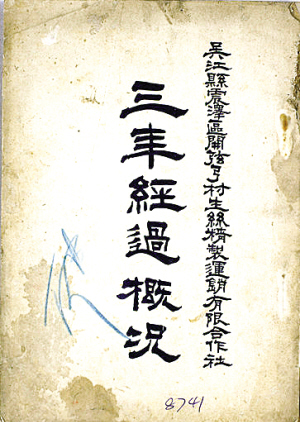 吳江縣震澤區開弦弓村生絲精製運銷有限合作社
三年經過概況
8741